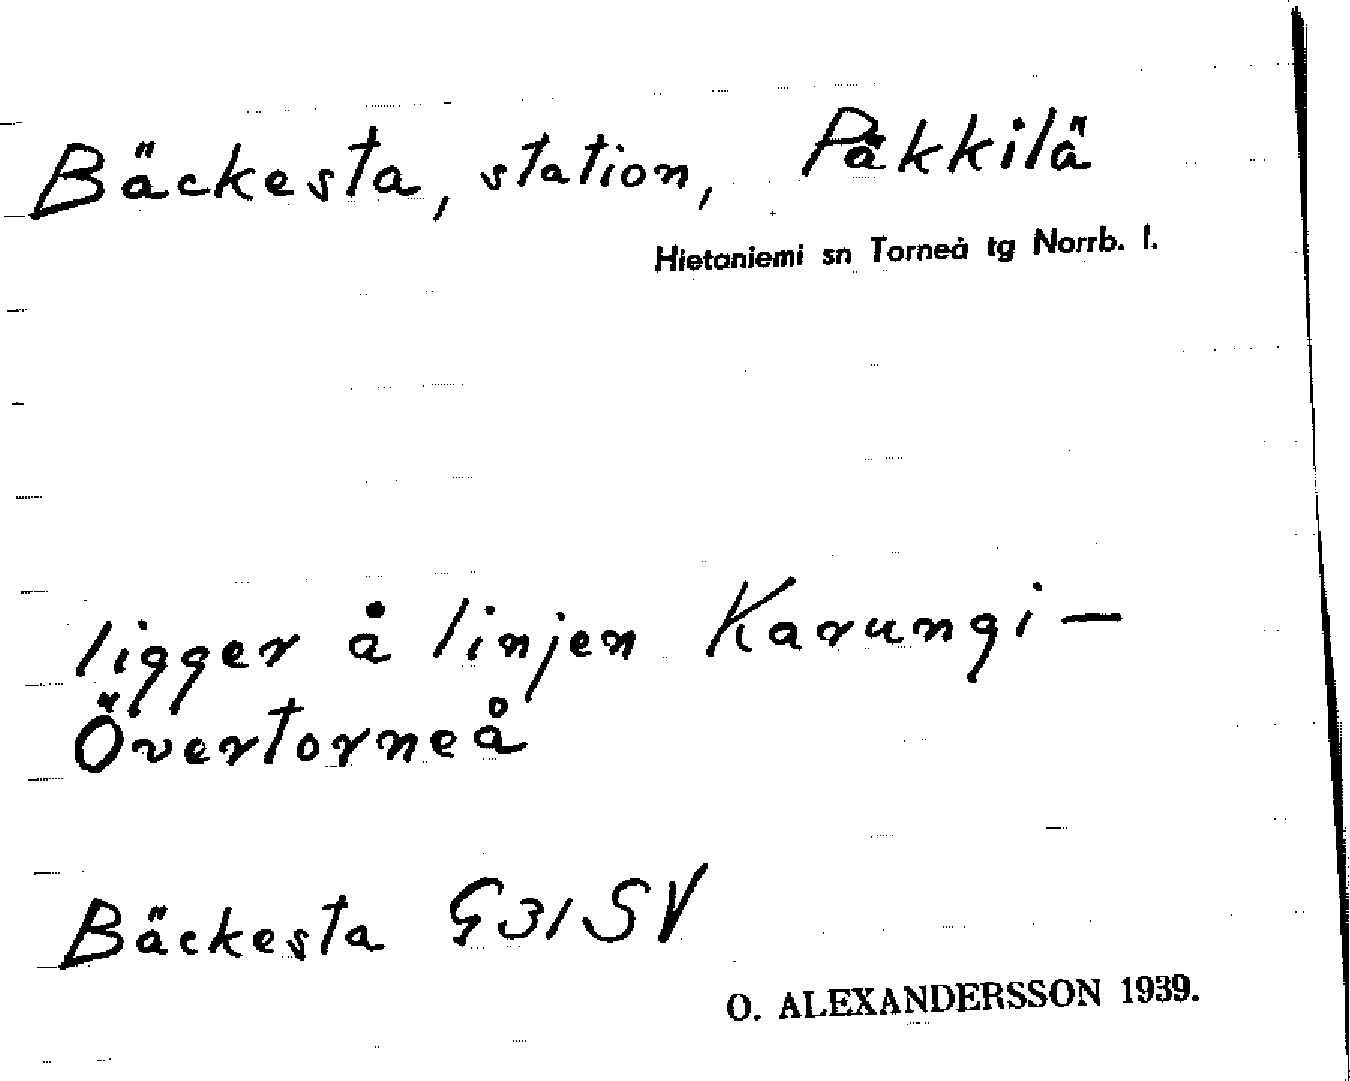 Bäckesta, station, Päkkilä
Hietaniemi sn Torneå tg Norrb. l.
ligger å linjen Karungi—
Övertorneå
Bäckesta G31SV
O. ALEXANDERSSON 1939.